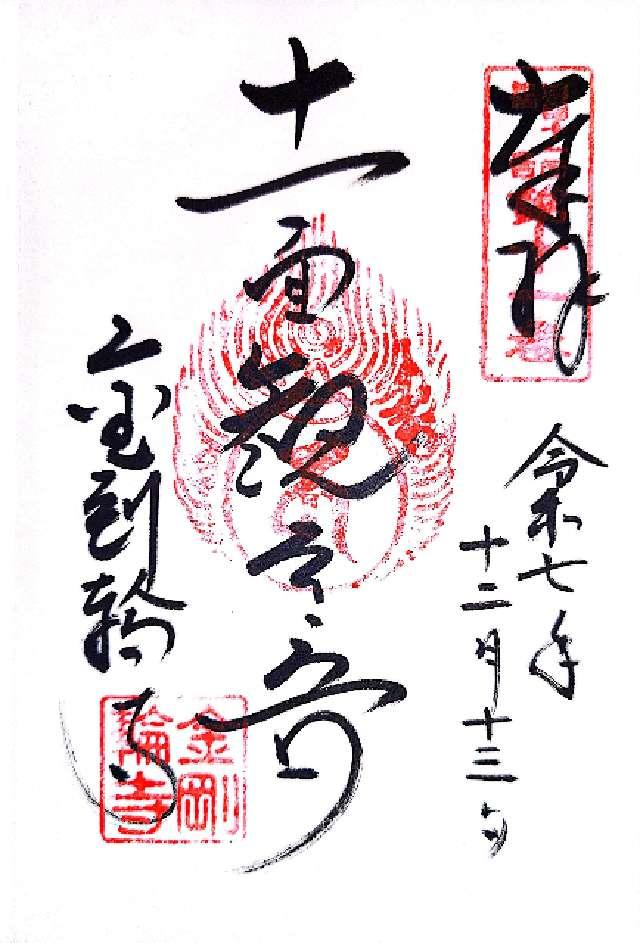 奉拝
令和七年
十二月十三日
十一面観世音
金剛輪寺
金剛
輪寺